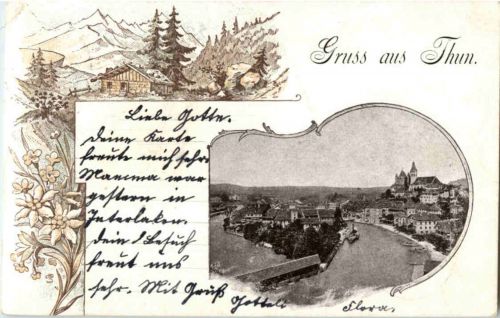 Gruss aus Thun.
Liebe Gotte.
deine Karte
freute mich sehr
Mamma war
gestern in
Interlaken.
dein Besuch
freut uns
sehr. Mit Gruß
Flora.